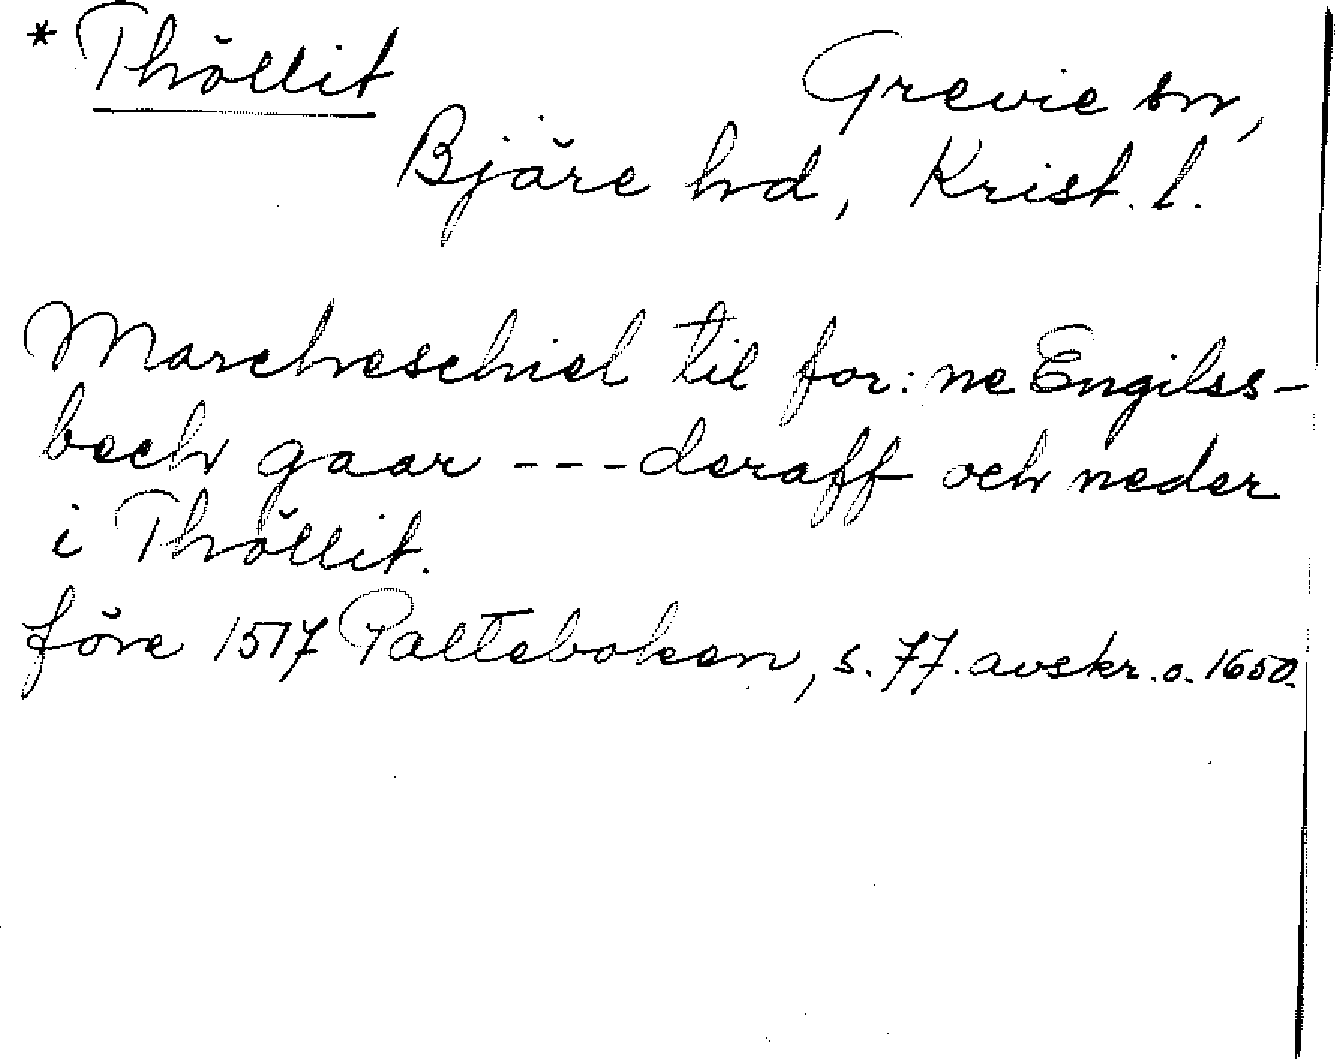 * Thöllit
Grevie sn,
Bjäre hd, Krist. l.
Marcheschiel til for: ne Engilss-
bech gaar --- deraff och neder
i Thöllit.
före 1517 Palteboken, s. 77. avskr. o. 1650.